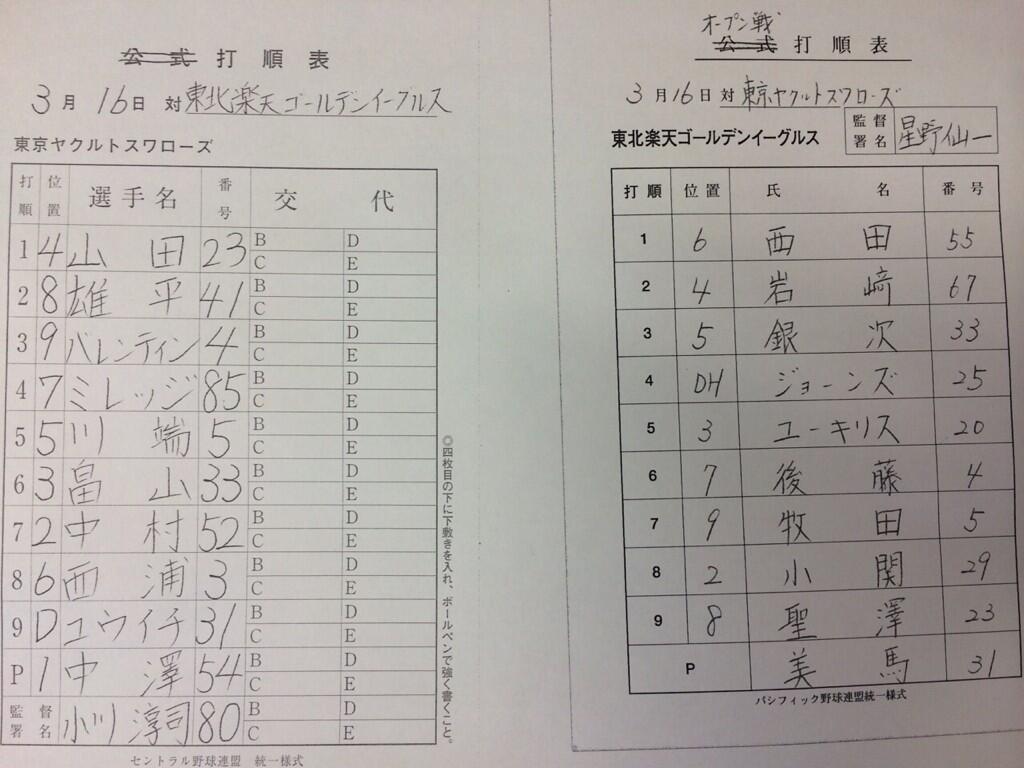 公式 打順表
3月 16日 対 東北楽天ゴールデンイーグルス
東京ヤクルトスワローズ
打順 位置 選手名 番号 交代
1 4 山田 23 B D C E
2 8 雄平 41 B D C E
3 9 バレンティン 4 B D C E
4 7 ミレッジ 85 B D C E
5 5 川端 5 B D C E
6 3 畠山 33 B D C E
7 2 中村 52 B D C E
8 6 西浦 3 B D C E
9 D ユウイチ 31 B D C E
P 1 中澤 54 B D C E
監督署名 小川淳司 80 B D C E
セントラル野球連盟 統一様式
◎四枚目の下に下敷きを入れ、ボールペンで強く書くこと。
オープン戦
公式 打順表
3月16日 対 東京ヤクルトスワローズ
東北楽天ゴールデンイーグルス 監督署名 星野仙一
打順 位置 氏名 番号
1 6 西田 55
2 4 岩﨑 67
3 5 銀次 33
4 DH ジョーンズ 25
5 3 ユーキリス 20
6 7 後藤 4
7 9 牧田 5
8 2 小関 29
9 8 聖澤 23
P 美馬 31
パシフィック野球連盟統一様式